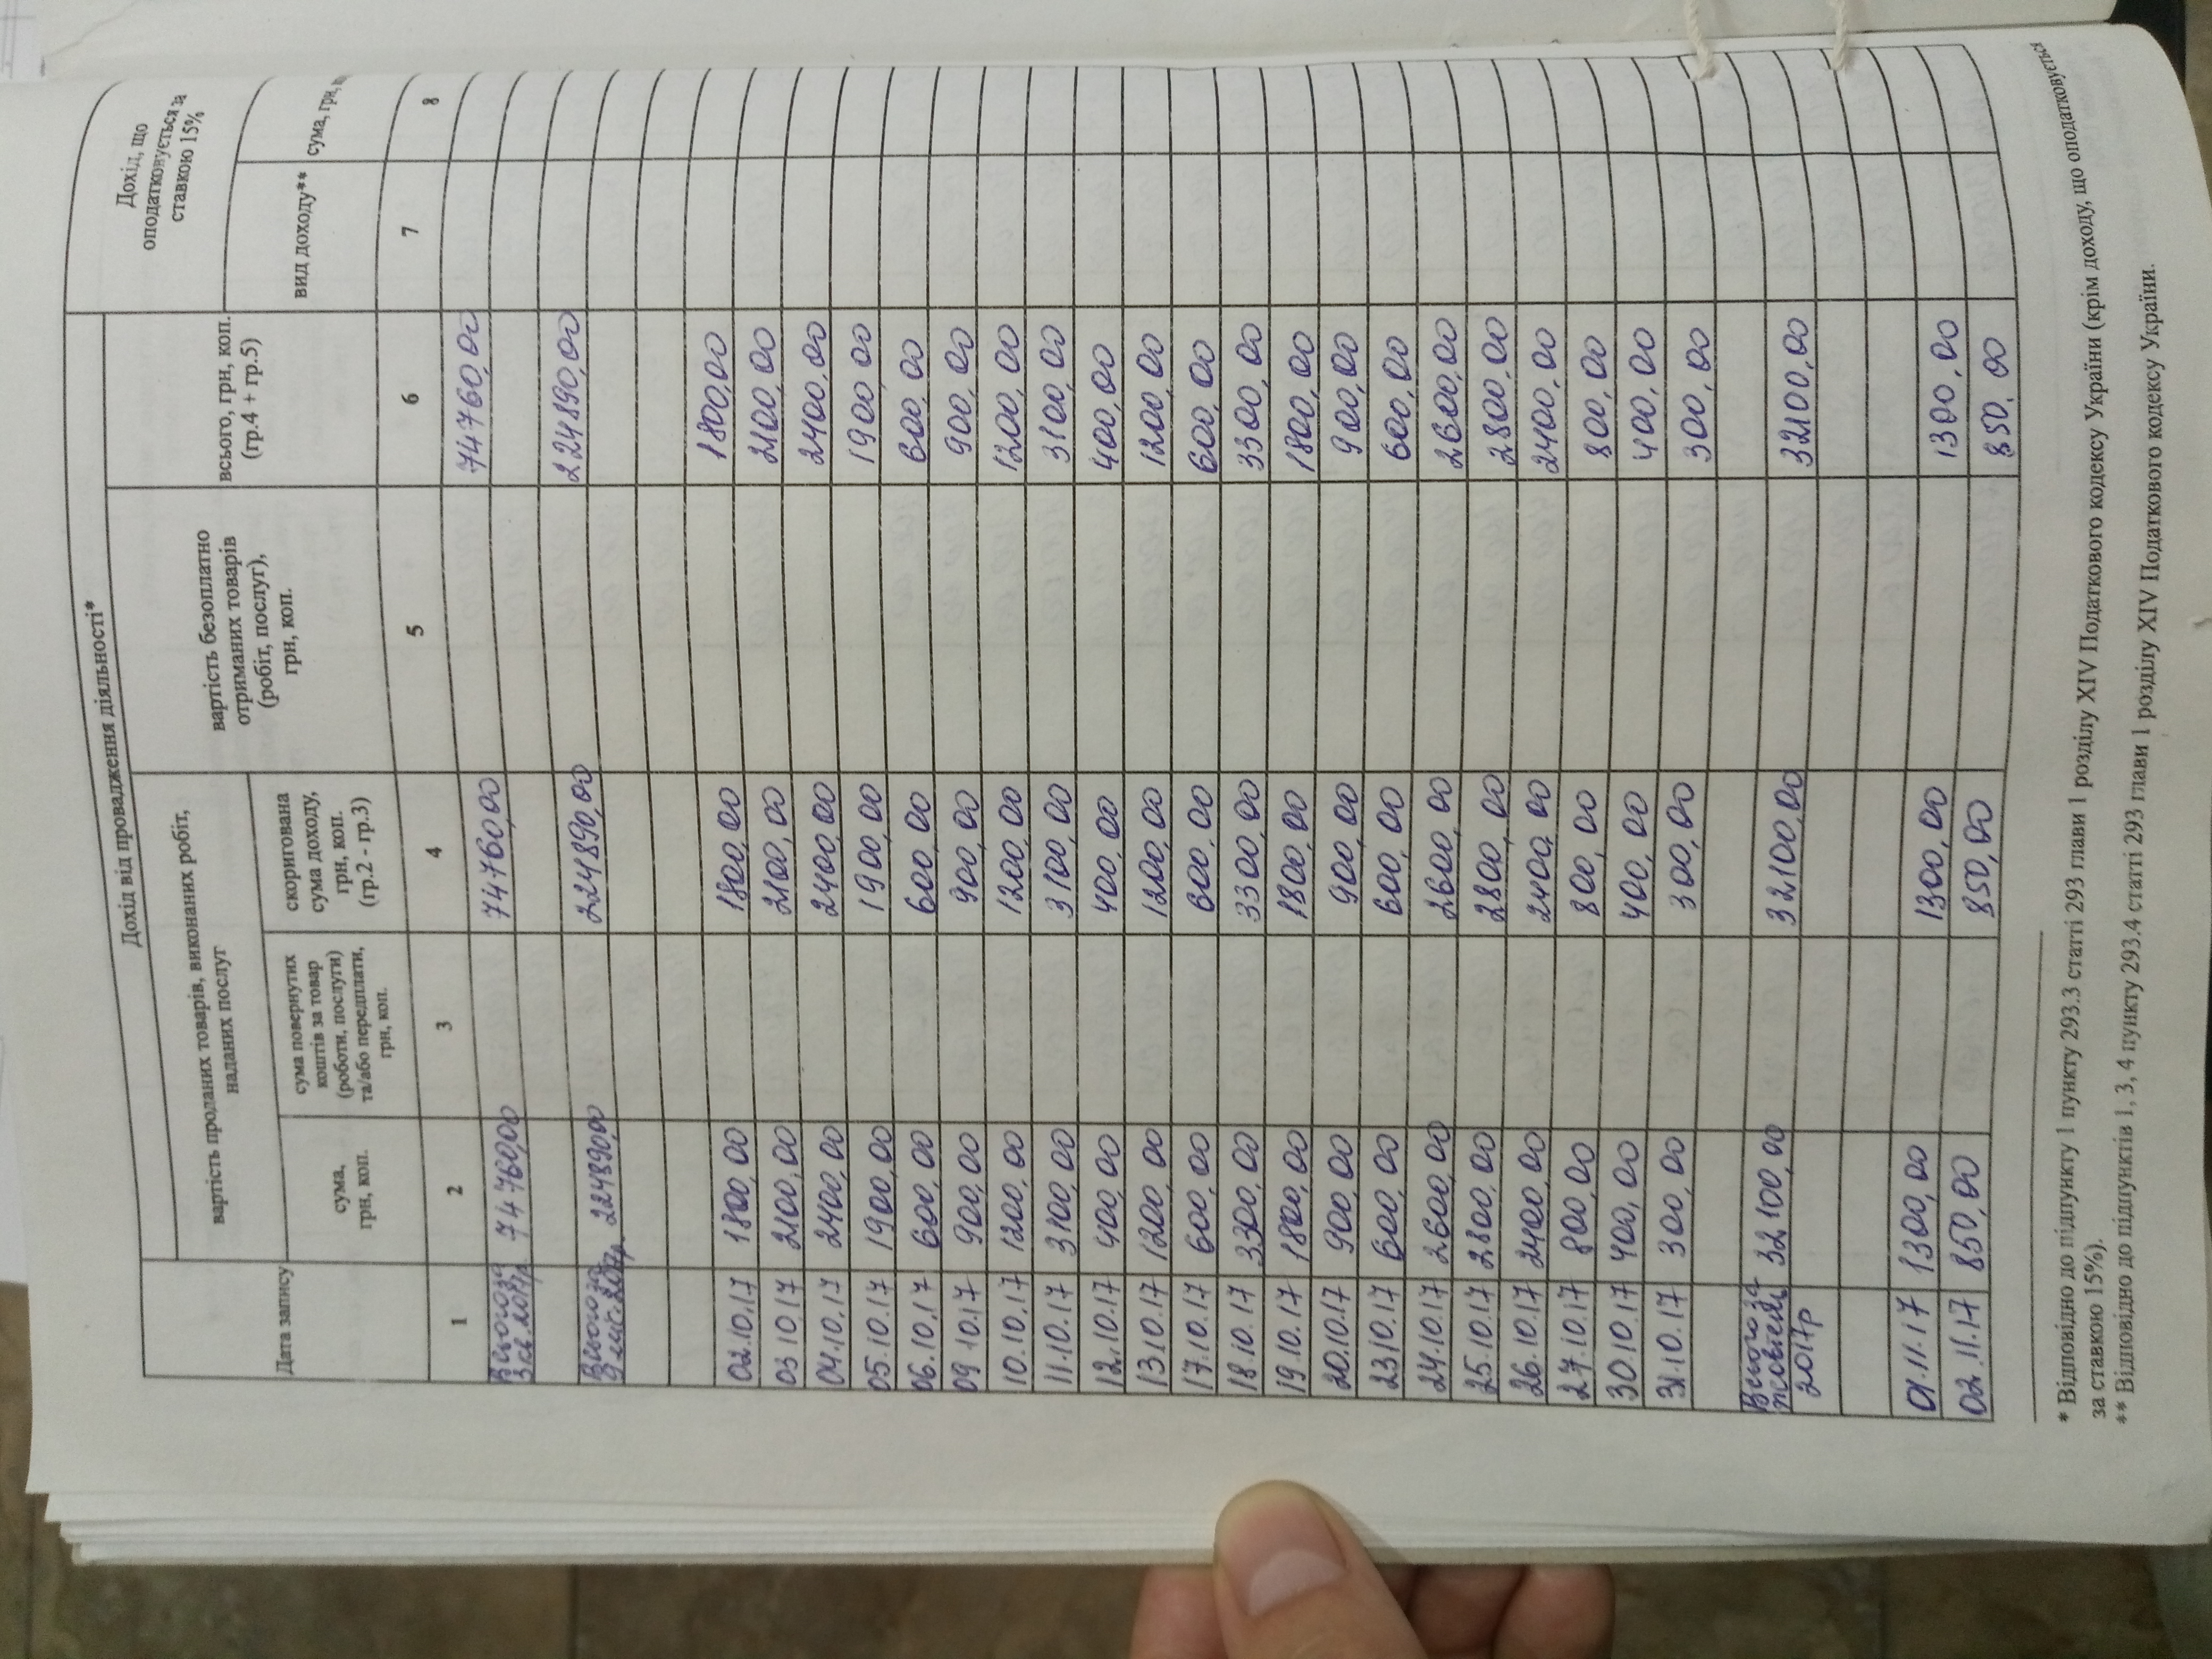 Дохід від провадження діяльності*
Дохід, що
оподатковується за
ставкою 15%
вартість проданих товарів, виконаних робіт,
наданих послуг
вартість безоплатно
отриманих товарів
(робіт, послуг),
грн, коп.
всього, грн, коп.
(гр.4 + гр.5)
Дата запису
сума,
грн, коп.
сума повернутих
коштів за товар
(роботи, послуги)
та/або передплати,
грн, коп.
скоригована
сума доходу,
грн, коп.
(гр.2 - гр.3)
вид доходу**
сума, грн,
1 2 3 4 5 6 7 8
Всього за 3 кв. 2017р 74760,00 74760,00 74760,00
Всього за 9 міс. 2017р. 224890,00 224890,00 224890,00
02.10.17 1800,00 1800,00 1800,00
03 10.17 2100,00 2100,00 2100,00
04.10.17 2400,00 2400,00 2400,00
05.10.17 1900,00 1900,00 1900,00
06.10.17 600,00 600,00 600,00
09 10.17 900,00 900,00 900,00
10.10.17 1200,00 1200,00 1200,00
11.10.17 3100,00 3100,00 3100,00
12.10.17 400,00 400,00 400,00
13.10.17 1200,00 1200,00 1200,00
17.10.17 600,00 600,00 600,00
18.10.17 3300,00 3300,00 3300,00
19.10.17 1800,00 1800,00 1800,00
20.10.17 900,00 900,00 900,00
23.10.17 600,00 600,00 600,00
24.10.17 2600,00 2600,00 2600,00
25.10.17 2800,00 2800,00 2800,00
26.10.17 2400,00 2400,00 2400,00
27.10.17 800,00 800,00 800,00
30.10.17 400,00 400,00 400,00
31.10.17 300,00 300,00 300,00
Всього за
жовтень 32100,00 32100,00 32100,00
2017р
01.11.17 1300,00 1300,00 1300,00
02.11.17 850,00 850,00 850,00
* Відповідно до підпункту 1 пункту 293.3 статті 293 глави 1 розділу XIV Податкового кодексу України (крім доходу, що оподатковується
за ставкою 15%).
** Відповідно до підпунктів 1, 3, 4 пункту 293.4 статті 293 глави 1 розділу XIV Податкового кодексу України.